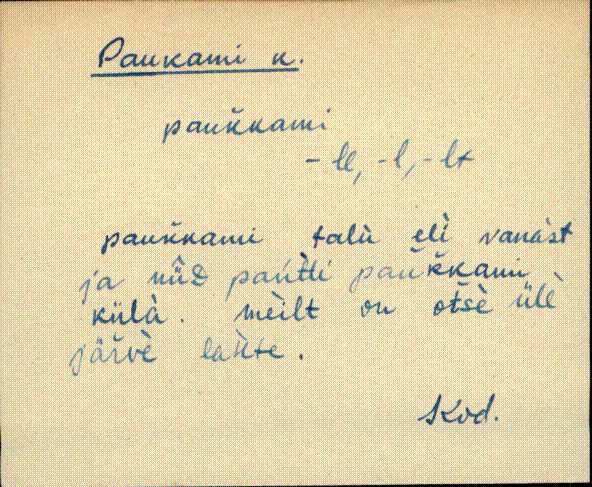 Paukami k.
pauk̆kami
- lE, -l, - lt
pauk̆kami talù eli vanast
ja nüD pańtti pauk̆kami
külà. mèilt on otšè üle
järvè lańte.
Kod.